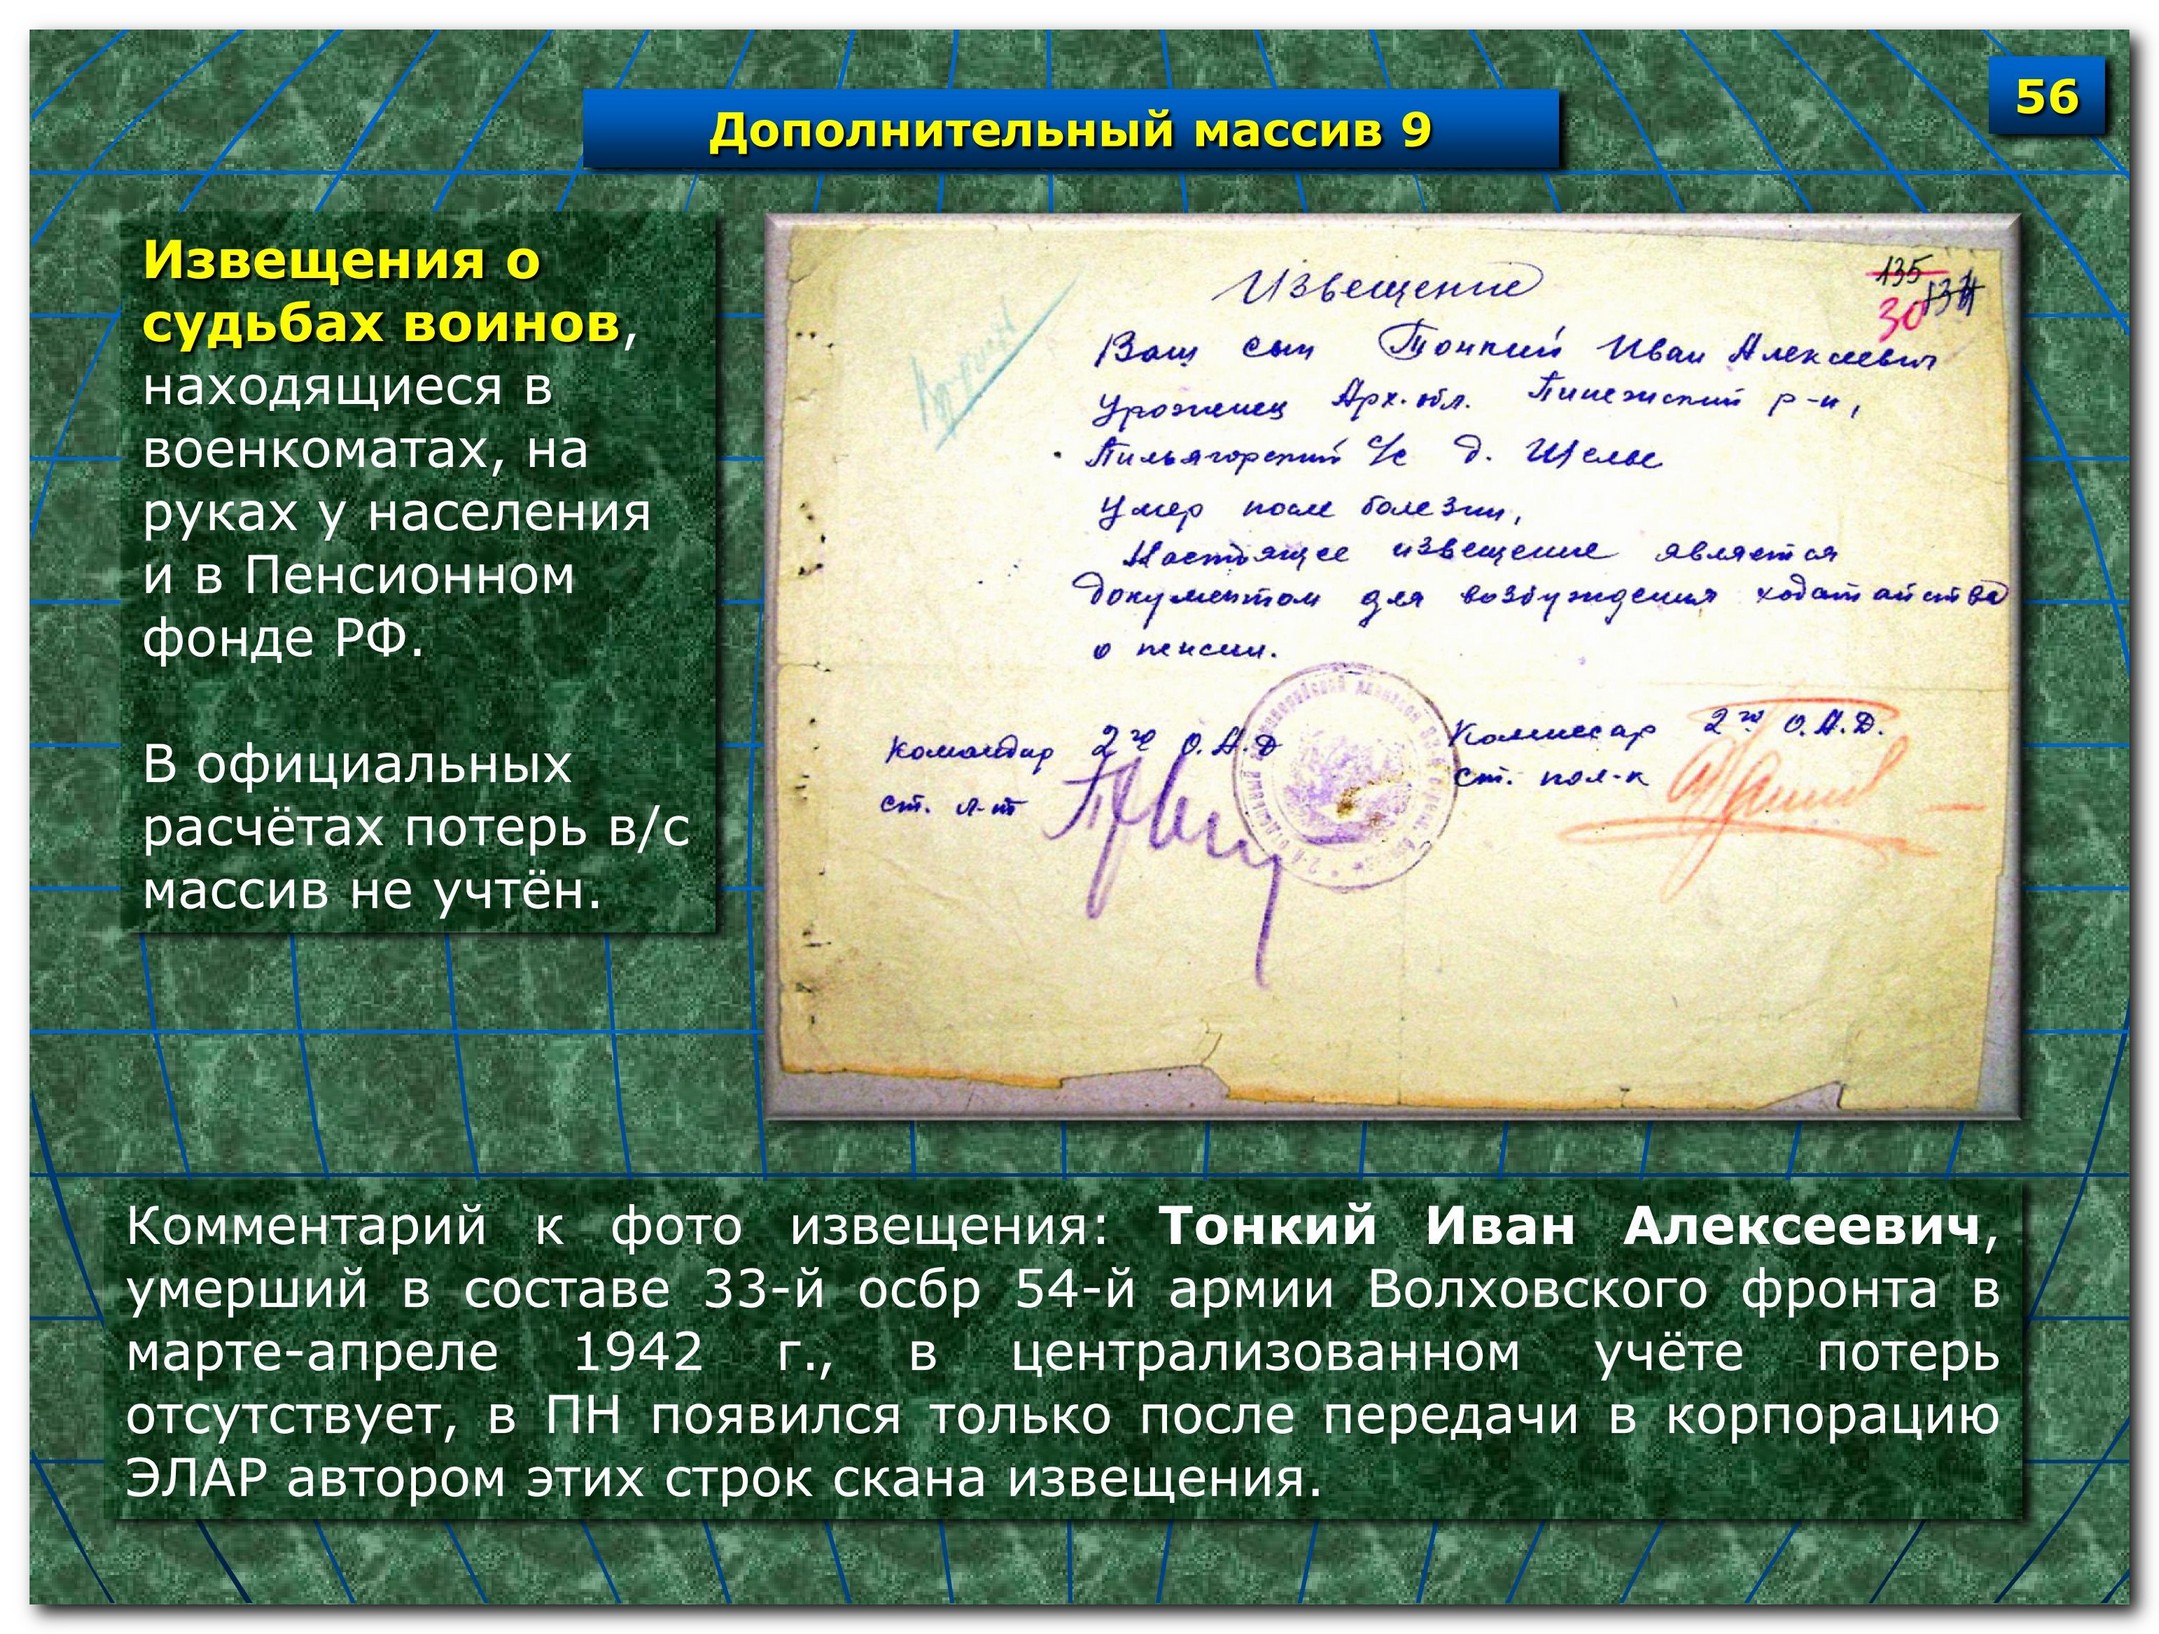 56
Дополнительный массив 9
Извещения о
судьбах воинов,
находящиеся в
военкоматах, на
руках у населения
и в Пенсионном
фонде РФ.
В официальных
расчётах потерь в/с
массив не учтён.
135
30
Извещение
Ваш сын Тонкий Иван Алексеевич
Уроженец Арх. обл. Пинежский р-н,
Пильягорский с/с д. Шелье
Умер после болезни,
Настоящее извещение является
документом для возбуждения ходатайства
о пенсии.
Командир 2го О.А.Д
ст. л-т
Комиссар 2го О.А.Д.
ст. пол-к
Комментарий к фото извещения: Тонкий Иван Алексеевич,
умерший в составе 33-й осбр 54-й армии Волховского фронта в
марте-апреле 1942 г., в централизованном учёте потерь
отсутствует, в ПН появился только после передачи в корпорацию
ЭЛАР автором этих строк скана извещения.